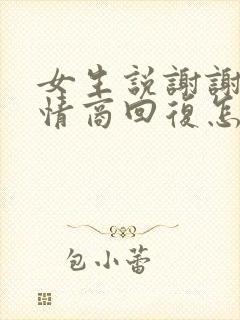 女生説謝謝
情商回復怎
包小蕾